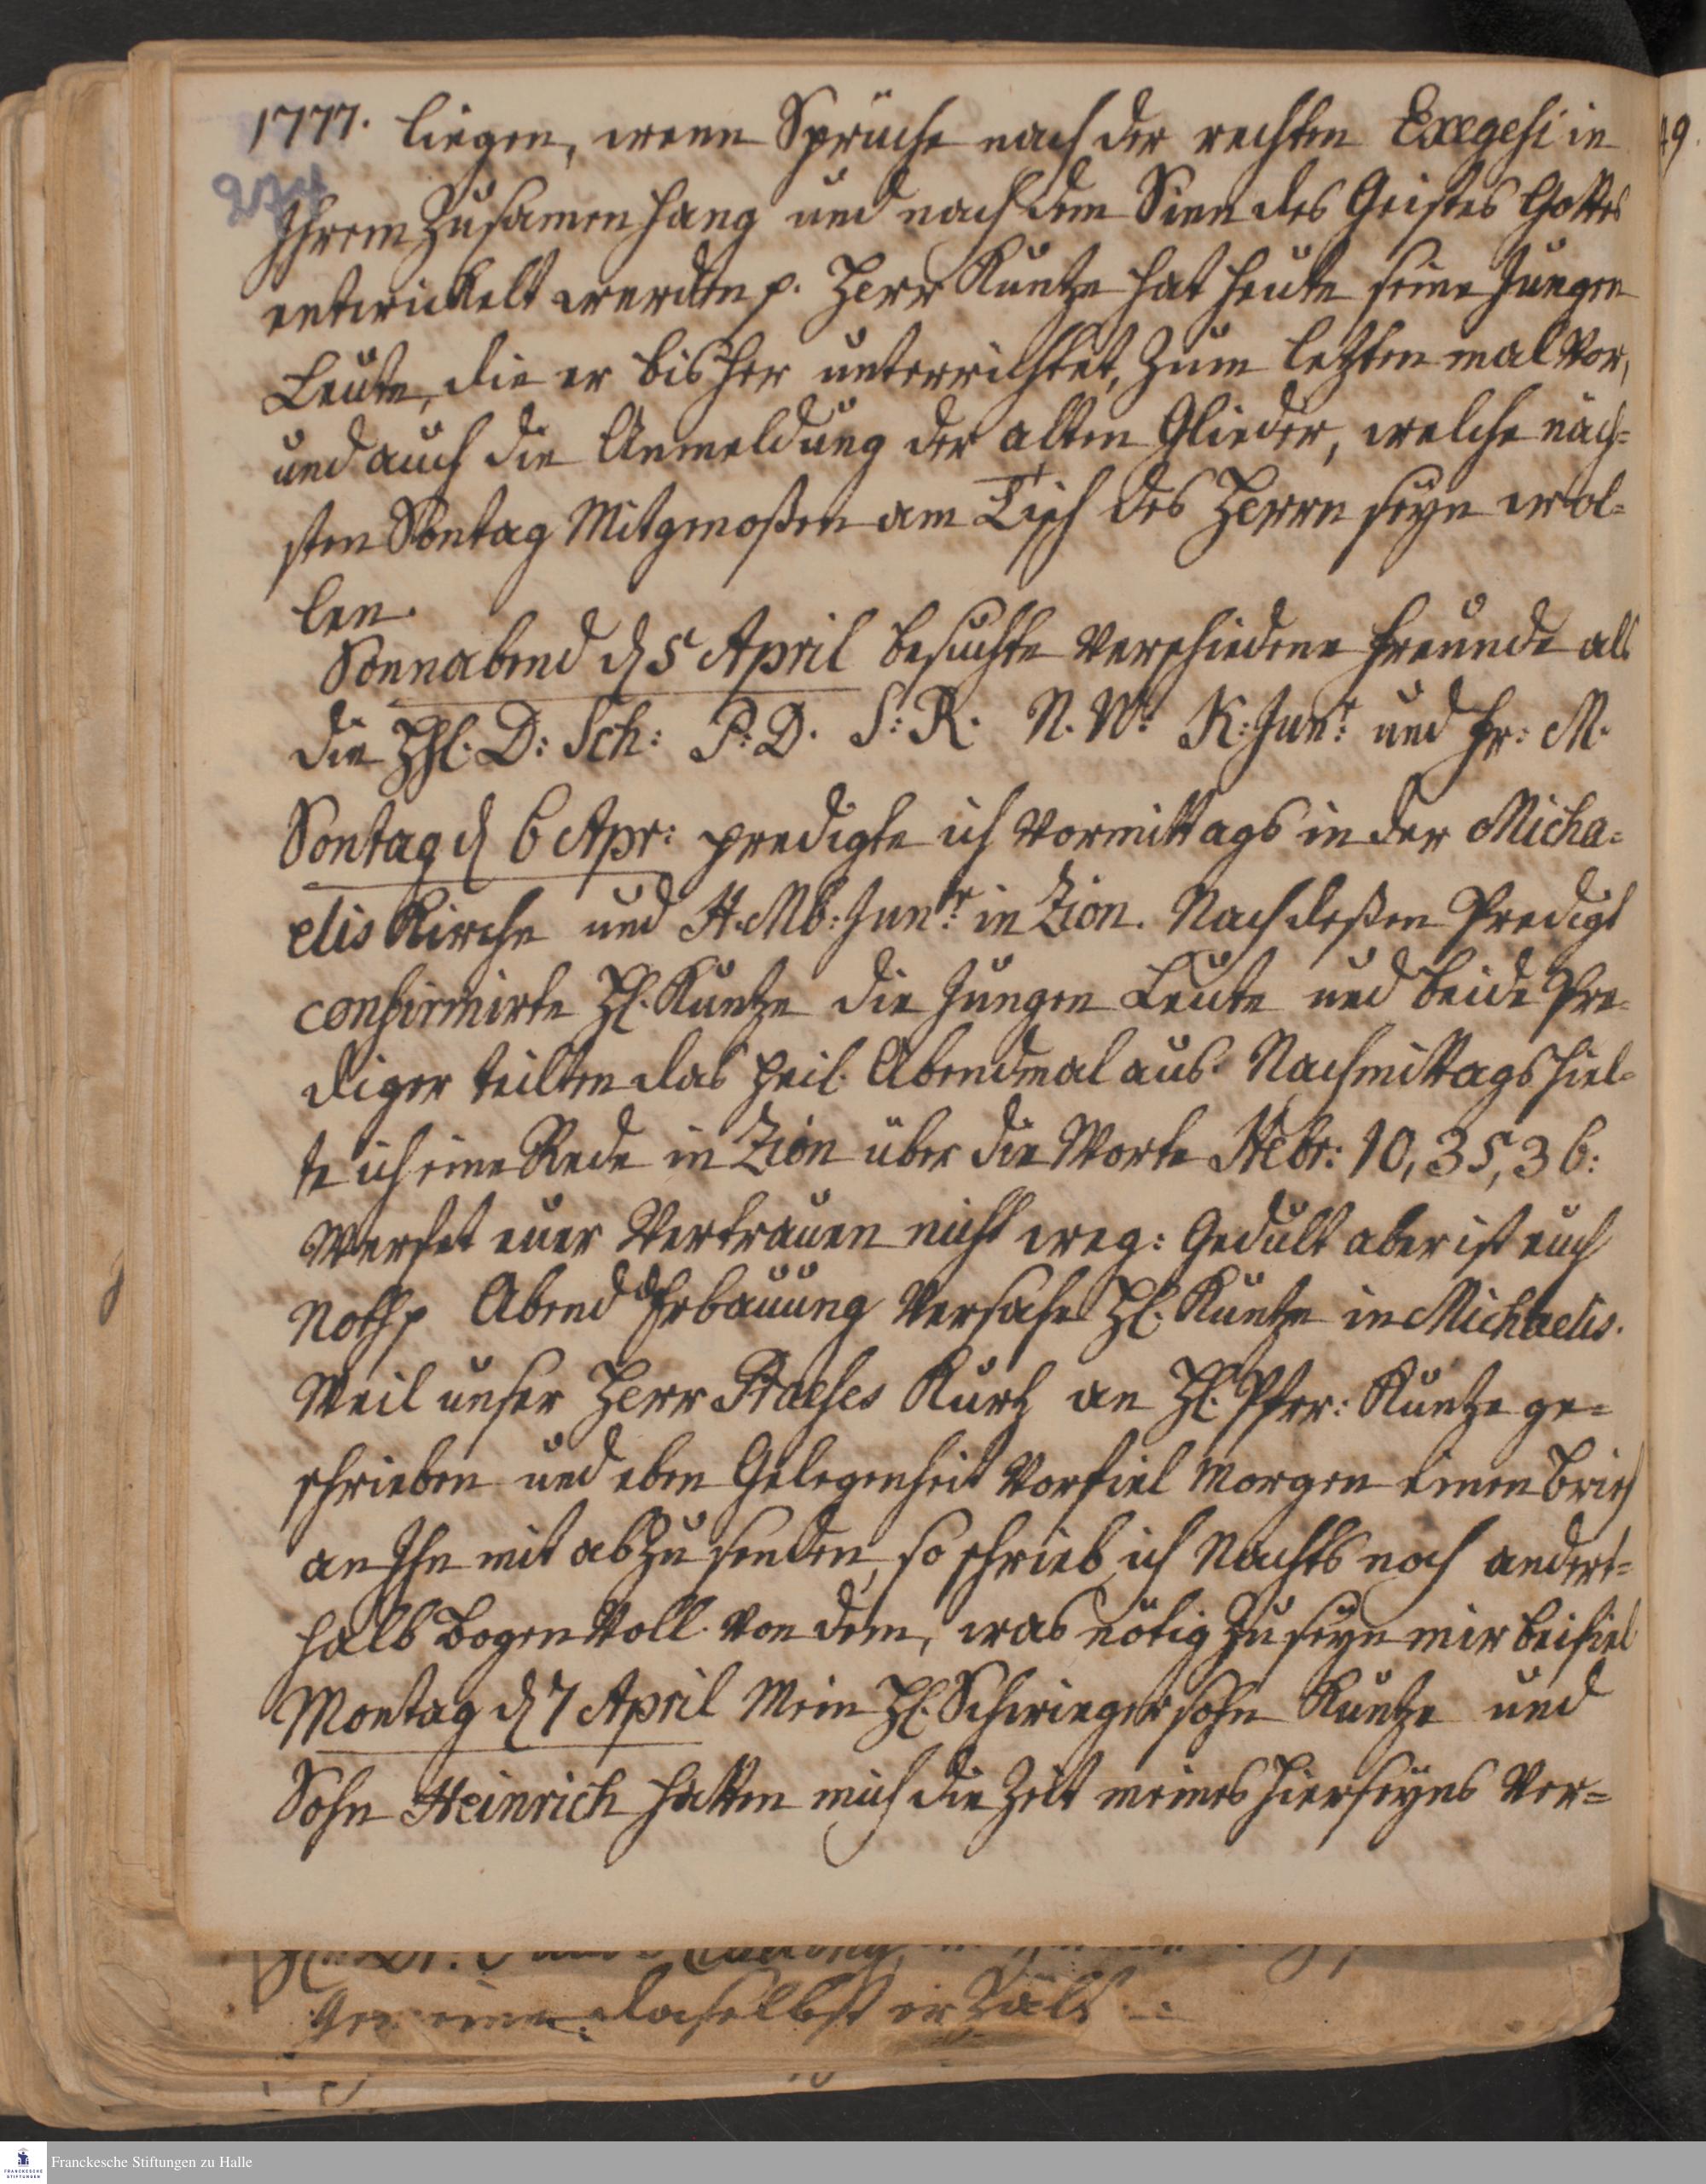 1777. liegen, wenn Sprüche nach der rechten Exegesi in
274
Ihrem Zusamenhang und nach dem Sinn des Geistes Gottes
entwickelt werden p. Herr Kuntze hat heute seine jungen
Leute, die er bisher unterrichtet, zum letzten mal vor,
und auch die Anmeldung der alten Glieder, welche näch=
sten Sontag Mitgenoßen am Tisch des Herrn seyn wol=
len.
Sonnabend d 5 April besuchte verschiedene Freunde als
die HhL. D: Sch: P: D. S: R. N. W: K: Junr: und Fr: M.
Sontag d 6 Apr: predigte ich vormittags in der Micha=
elis Kirche und H. Mb: Junr: in Zion. Nach deßen Predigt
confirmirte HL. Kuntze die jungen Leute und beide Pre=
diger teilten das heil. Abendmal aus. Nachmittags hiel=
te ich eine Rede in Zion über die Worte Hebr: 10, 35, 36:
Werfet euer Vertrauen nicht weg: Gedult aber ist euch
Noth p Abend Erbauung versahe HL. Kuntze in Michaelis.
Weil unser Herr Praeses Kurtz an HL. Pfrr: Kuntze ge=
schrieben und eben Gelegenheit vorfiel morgen einen Brief
an Ihn mit abzusenden, so schrieb ich Nachts noch andert=
halb Bogen voll von dem, was nötig zu seyn mir beifiel
Montag d 7 April Mein HL. Schwiegersohn Kuntze und
Sohn Heinrich hatten mich die Zeit meines hierseyns ver=
daselbst erzält
49
Franckesche Stiftungen zu Halle
FRANCKESCHE
STIFTUNGEN